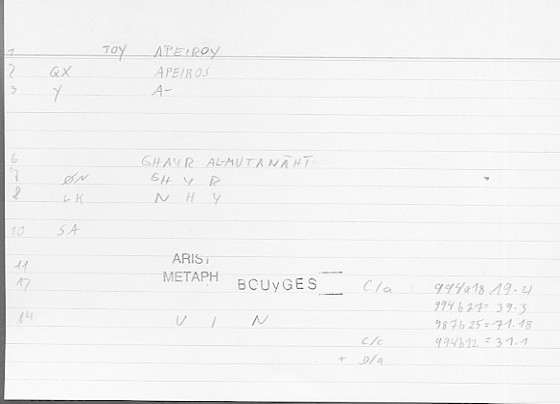 1 TOY APEIROY
2 QX APEIROS
3 Y A-
6 GHAYR AL-MUTANĀHĪ
7 ØN GH Y R
8 LK N H Y
10 SA
11 ARIST
12 METAPH BOUyGES C/a : 994a18 19.4
994b27= 39.3
14 V I N 987b25=71.18
C/c 994b12 = 31.1
+ D/a